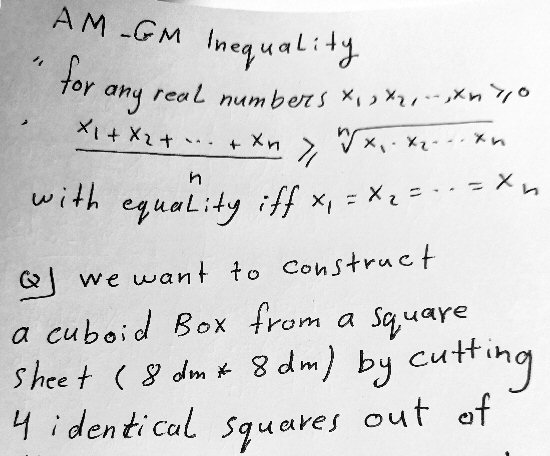 AM-GM Inequality
" for any real numbers x₁, x₂, --, xn ≥ 0
x₁ + x₂ + ... + xn / n ≥ ⁿ√x₁. x₂. -- xn
with equality iff x₁ = x₂ = - - - = xn
Q] we want to construct
a cuboid Box from a square
sheet ( 8 dm * 8 dm) by cutting
4 identical squares out of